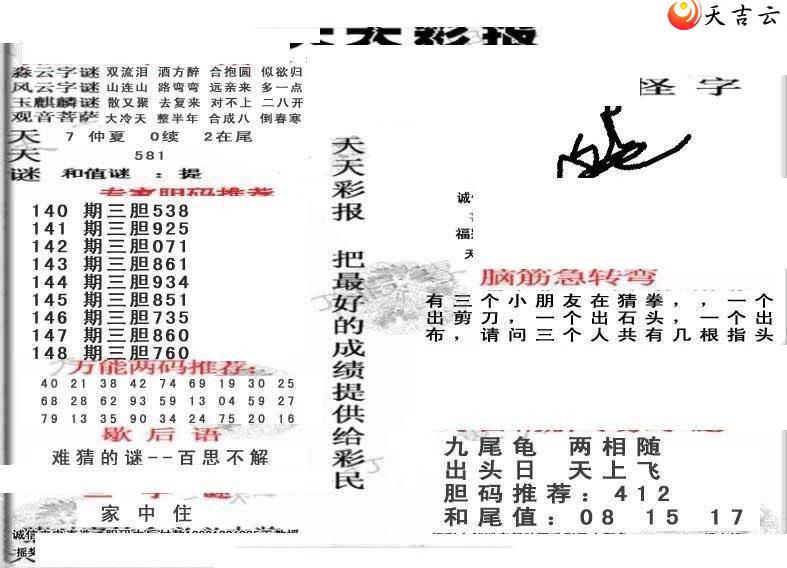 天吉云
天天彩报
怪字
森云字谜 双流泪 酒方醉 合抱圆 似欲归
风云字谜 山连山 路弯弯 远亲来 多一点
玉麒麟谜 散又聚 去复来 对不上 二八开
观音菩萨 大冷天 整半年 合成八 倒春寒
天 7 仲夏 0续 2在尾
天 581
谜 和值谜 : 提
专家胆码推荐
140 期三胆538
141 期三胆925
142 期三胆071
143 期三胆861
144 期三胆934
145 期三胆851
146 期三胆735
147 期三胆860
148 期三胆760
万能两码推荐:
40 21 38 42 74 69 19 30 25
68 28 62 93 59 13 04 59 27
79 13 35 90 34 24 75 20 16
歇后语
难猜的谜--百思不解
家中住
天天彩报 把最好的成绩提供给彩民
脑筋急转弯
有三个小朋友在猜拳,,一个
出剪刀,一个出石头,一个出
布,请问三个人共有几根指头
九尾龟 两相随
出头日 天上飞
胆码推荐:412
和尾值:08 15 17